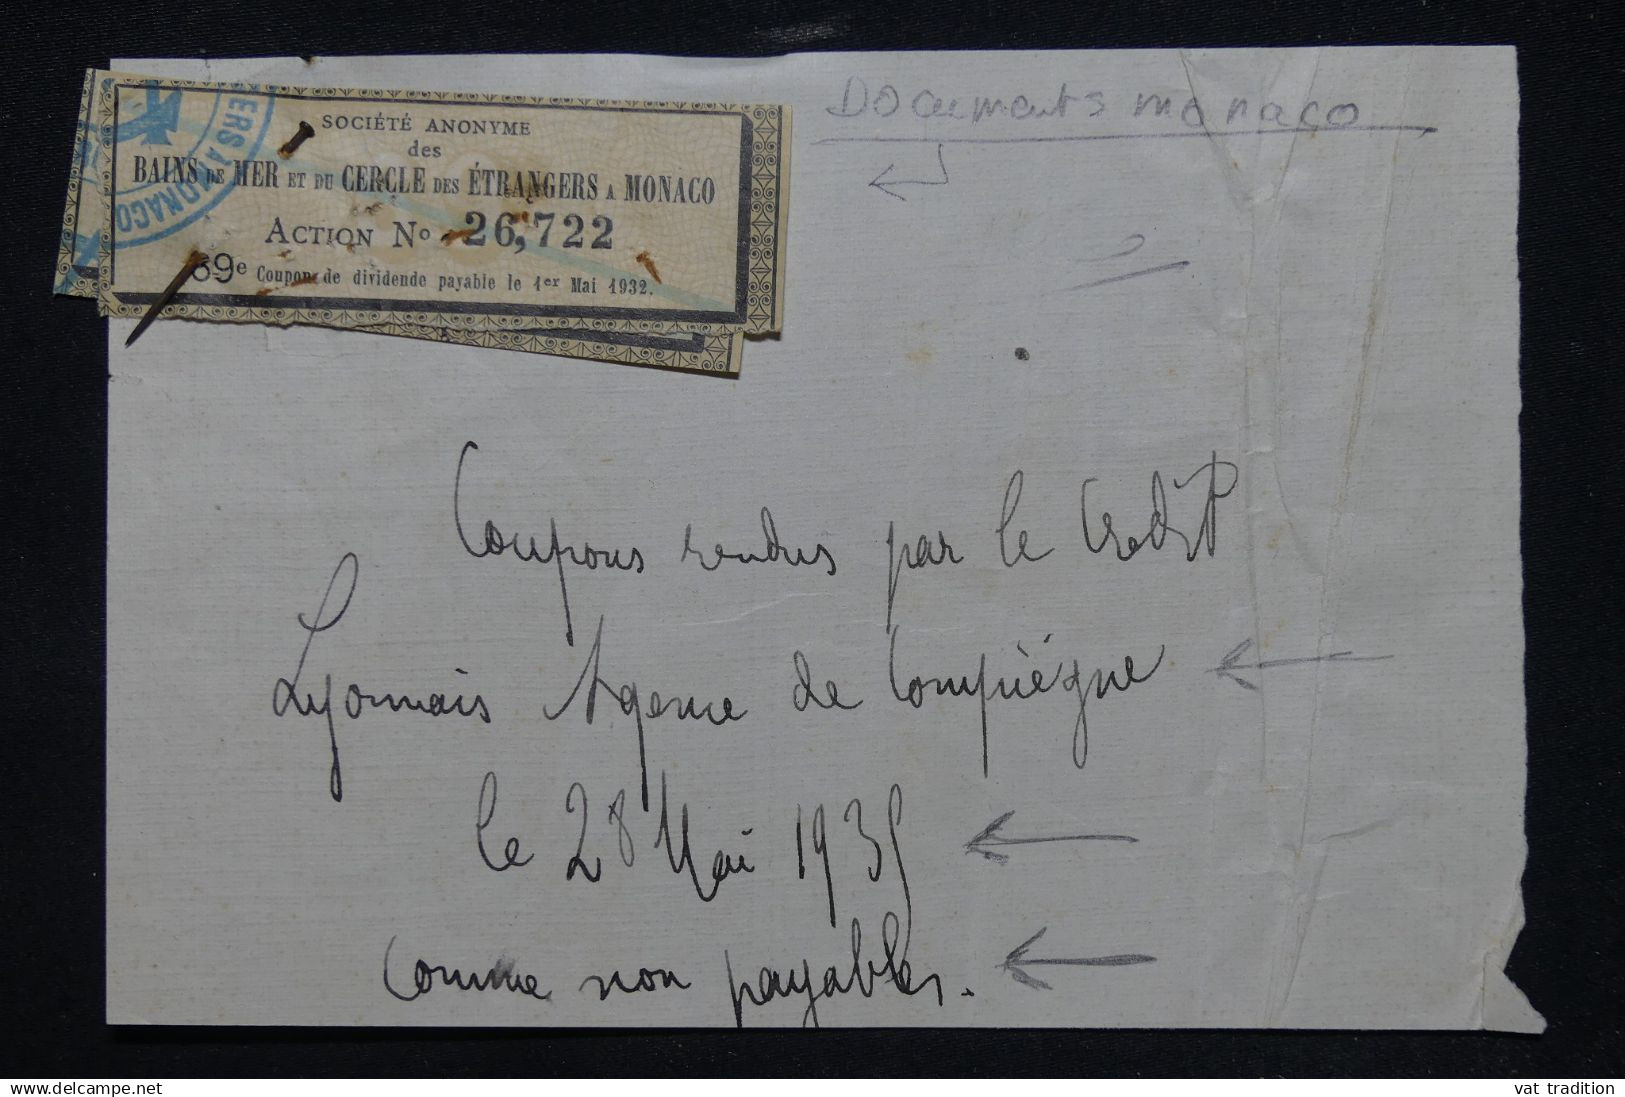 SOCIÉTÉ ANONYME
des
BAINS DE MER ET DU CERCLE DES ÉTRANGERS A MONACO
ACTION No 26,722
69e Coupon de dividende payable le 1er Mai 1932.
ERS A MONACO
Documents monaco
Coupons rendus par le Crédit
Lyonnais Agence de Compiègne
le 28 Mai 1935
comme non payables.
www.delcampe.net
vat tradition